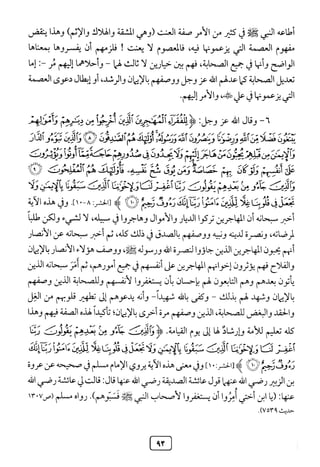 أطاعه النبي ﷺ في كثير من الأمر صفة العنت (وهي المشقة والهلاك والإثم) وهذا ينقض
مفهوم العصمة التي يزعمونها فيه، فالمعصوم لا يعنت ! فلزمهم أن يفسروها بمعناها
الواضح وأنها في جميع الصحابة، فهم بين خيارين لا ثالث لهما - وأحلاهما إليهم مُر -: إما
تعديل الصحابة كما عدلهم الله عز وجل ووصفهم بالإيمان والرشد، أو إبطال دعوى العصمة
التي يزعمونها في علي ، والأمر إليهم.
٦- وقال الله عز وجل: ﴿ لِلْفُقَرَاءِ الْمُهَاجِرِينَ الَّذِينَ أُخْرِجُوا مِن دِيَارِهِمْ وَأَمْوَالِهِمْ
يَبْتَغُونَ فَضْلًا مِّنَ اللَّهِ وَرِضْوَانًا وَيَنصُرُونَ اللَّهَ وَرَسُولَهُ أُولَٰئِكَ هُمُ الصَّادِقُونَ ۝٨ وَالَّذِينَ تَبَوَّءُو الدَّارَ
وَالْإِيمَانَ مِن قَبْلِهِمْ يُحِبُّونَ مَنْ هَاجَرَ إِلَيْهِمْ وَلَا يَجِدُونَ فِي صُدُورِهِمْ حَاجَةً مِّمَّا أُوتُوا وَيُؤْثِرُونَ
عَلَىٰ أَنفُسِهِمْ وَلَوْ كَانَ بِهِمْ خَصَاصَةٌ وَمَن يُوقَ شُحَّ نَفْسِهِ فَأُولَٰئِكَ هُمُ الْمُفْلِحُونَ ۝٩
وَالَّذِينَ جَاءُو مِن بَعْدِهِمْ يَقُولُونَ رَبَّنَا اغْفِرْ لَنَا وَلِإِخْوَانِنَا الَّذِينَ سَبَقُونَا بِالْإِيمَانِ وَلَا
تَجْعَلْ فِي قُلُوبِنَا غِلًّا لِّلَّذِينَ ءَامَنُوا رَبَّنَا إِنَّكَ رَءُوفٌ رَّحِيمٌ ۝١٠ ﴾ [الحشر: ٨-١٠]. وفي هذه الآية
أخبر سبحانه أن المهاجرين تركوا الديار والأموال وهاجروا في سبيله، لا لشيء ولكن طلباً
لمرضاته، ونصرة لدينه ونبيه ووصفهم بالصدق في ذلك كله، ثم أخبر سبحانه عن الأنصار
أنهم يحبون المهاجرين الذين جاؤوا لنصرة الله ورسوله ﷺ، ووصف هؤلاء الأنصار بالإيمان
والفلاح فهم يؤثرون إخوانهم المهاجرين على أنفسهم في جميع أمورهم، ثم أمَرَ سبحانه الذين
يأتون بعدهم وهم التابعون لهم بإحسان بأن يستغفروا لأنفسهم وللصحابة الذين وصفهم
بالإيمان وشهد لهم بذلك - وكفى بالله شهيداً- وأنه يدعوهم إلى تطهير قلوبهم من الغِل
والحقد والبغض للصحابة، الذين وصفهم مرة أخرى بالإيمان؛ تأكيداً لهذه الصفة فيهم وهذا
كله تعليم للأمة وإرشادٌ لها إلى يوم القيامة. ﴿ وَالَّذِينَ جَاءُو مِنْ بَعْدِهِمْ يَقُولُونَ رَبَّنَا
اغْفِرْ لَنَا وَلِإِخْوَانِنَا الَّذِينَ سَبَقُونَا بِالْإِيمَانِ وَلَا تَجْعَلْ فِي قُلُوبِنَا غِلًّا لِّلَّذِينَ ءَامَنُوا رَبَّنَا إِنَّكَ
رَءُوفٌ رَّحِيمٌ ۝١٠ ﴾ [الحشر: ١٠] وفي معنى هذه الآية يروي الإمام مسلم في صحيحه عن عروة
بن الزبير رضي الله عنهما قول عائشة الصديقة رضي الله عنها قال: قالت لي عائشة رضي الله
عنها: (يا ابن أختي أُمِرُوا أن يستغفروا لأصحاب النبي ﷺ فَسَبُوهم). رواه مسلم (ص١٣٠٧
حديث ٧٥٣٩)
٩٣